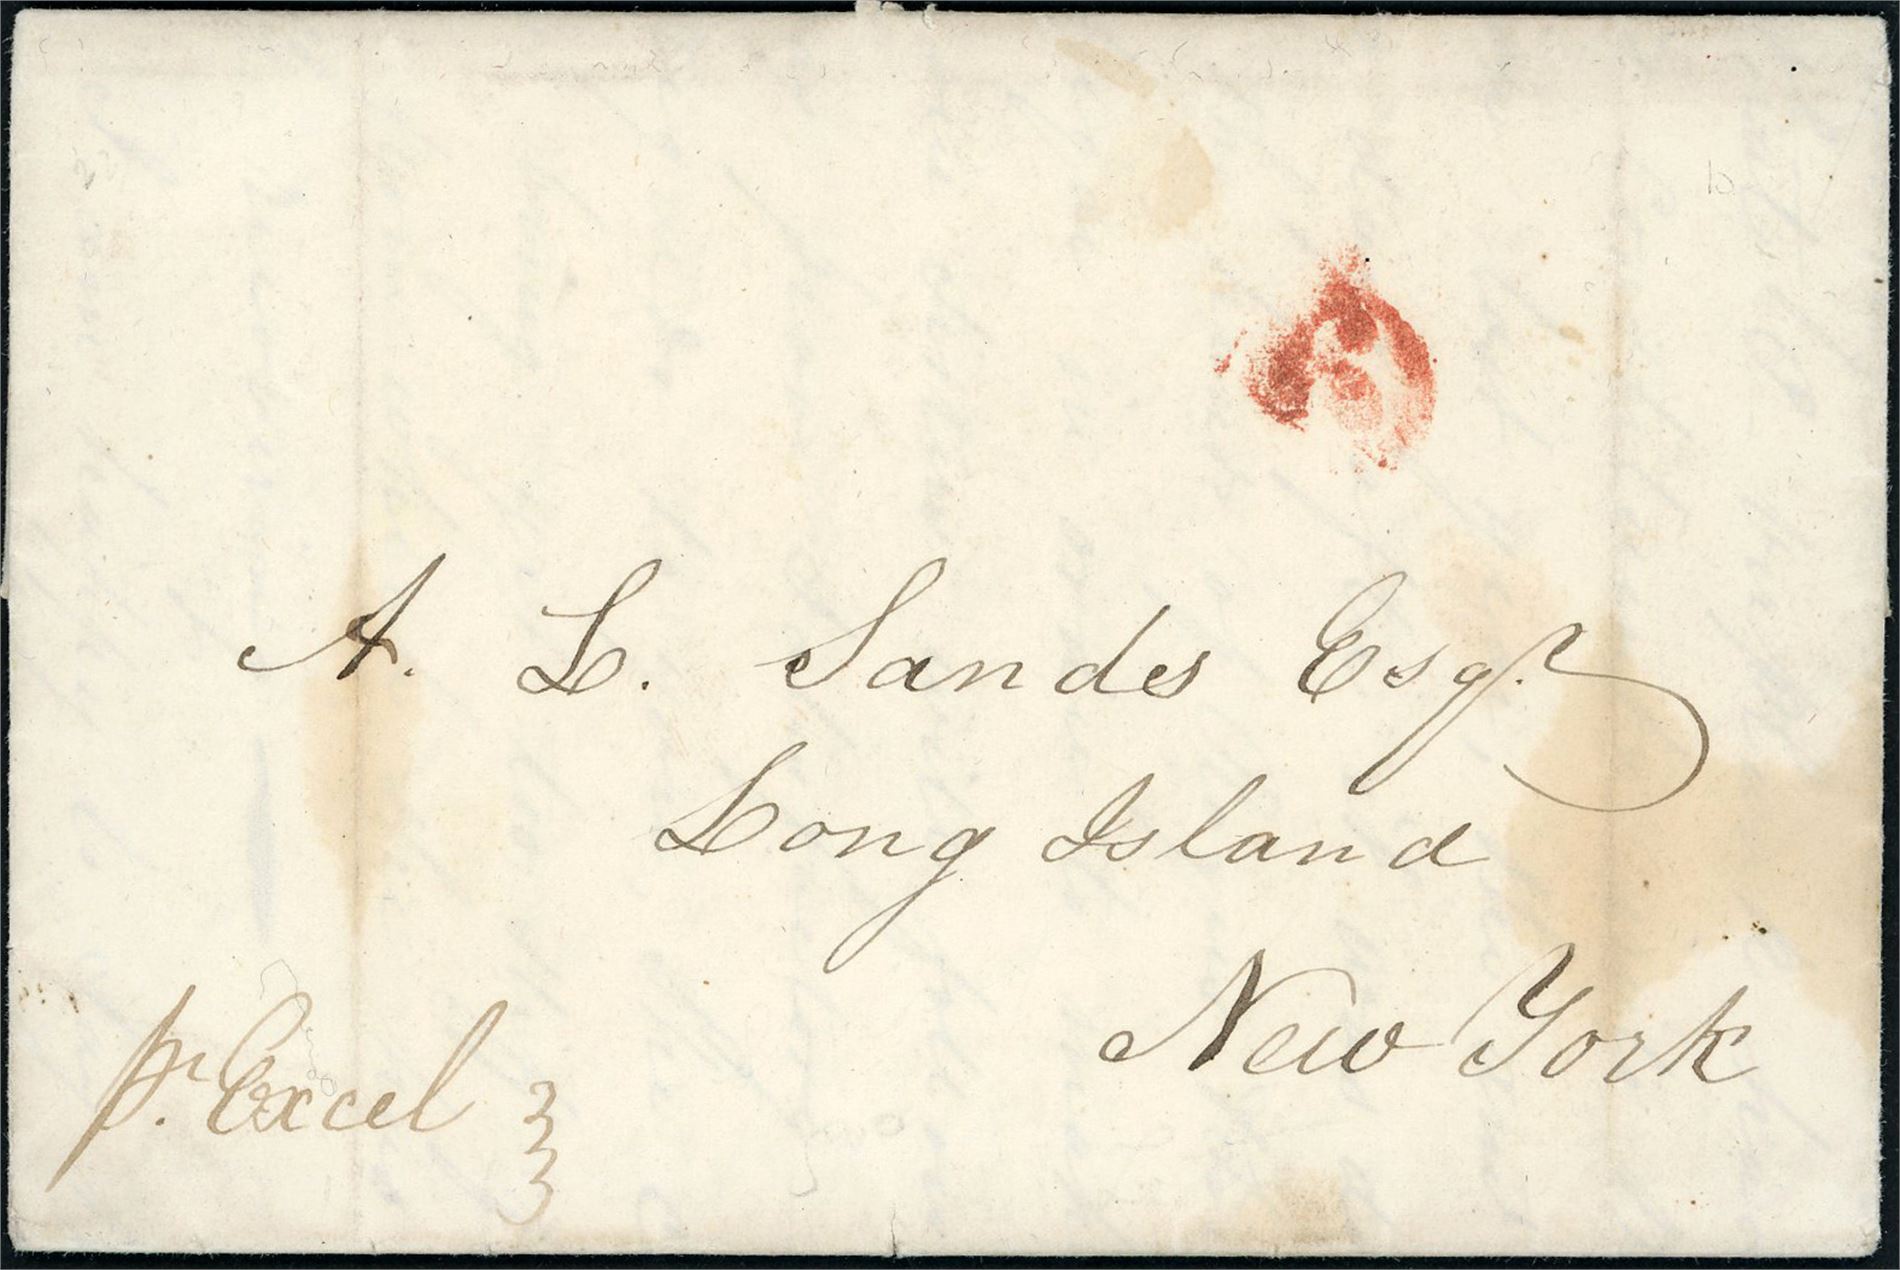 A. L. Sands Esqr.
Long Island
New York
pr. Excel